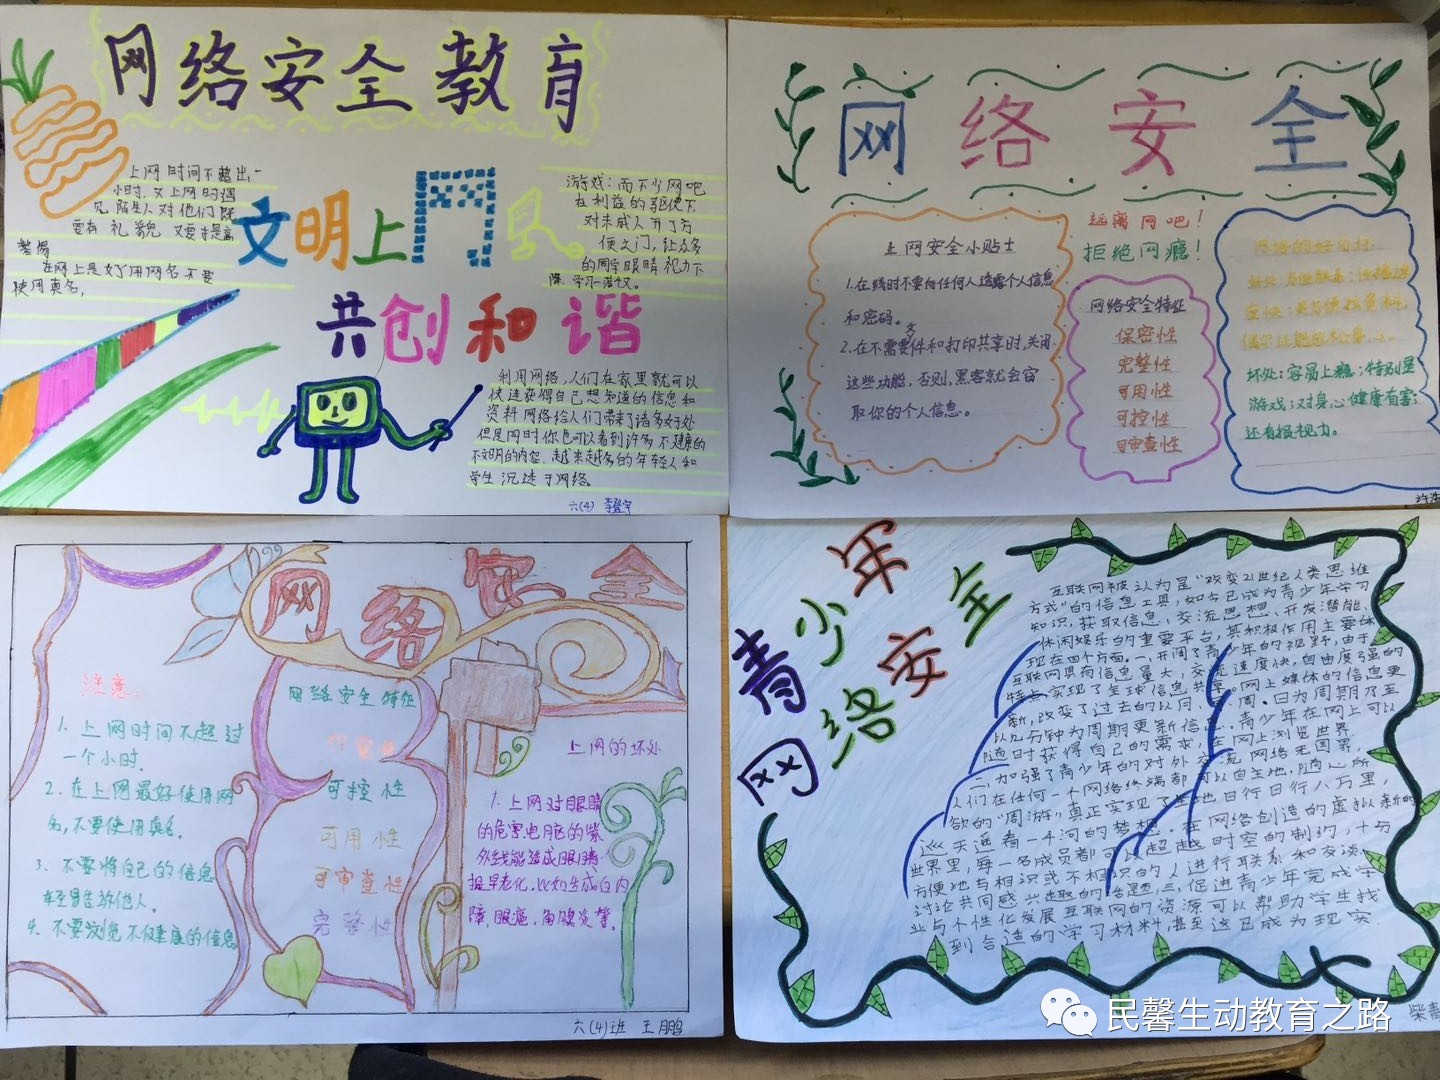 网络安全教育
上网时间不超出一
小时,又上网时遇
见陌生人对他们既
要有礼貌 又要提高
警惕
在网上最好用网名不要
使用真名,
文明上网
游戏:而不少网吧
在利益的驱使下,
对未成人开了方
便之门,让众多
的同学眼睛视力下
降
共创和谐
利用网络,人们在家里就可以
快速获得自己想知道的信息和
资料 网络给人们带来了诸多好处
但是同时你也可以看到许多不健康的
不文明的内容,越来越多的年轻人和
学生沉迷于网络。
六(4)
网络安全
上网安全小贴士
1.在线时不要向任何人透露个人信息
和密码。
2.在不需要文件和打印共享时,关闭
这些功能,否则,黑客就会窃
取你的个人信息。
远离网吧!
拒绝网瘾!
网络安全特征
保密性
完整性
可用性
可控性
可审查性
坏处:容易上瘾;特别是
游戏;对身心健康有害;
还有损视力。
网络安全
注意:
1. 上网时间不超过
一个小时.
2. 在上网最好使用网
名,不要使用真名.
3. 不要将自己的信息
轻易告诉他人.
4. 不要浏览不健康的信息
网络安全特征
保密性
可控性
可用性
可审查性
完整性
上网的坏处
1. 上网对眼睛
的危害电脑的紫
外线能造成眼睛
提早老化,比如生成白内
障,眼癌,角膜炎等。
六(4)班 王鹏
青少年
网络安全
互联网被认为是“改变21世纪人类思维
方式”的信息工具,如今已成为青少年学习
知识,获取信息,交流思想、开发潜能、
休闲娱乐的重要平台,其积极作用主要体
现在四个方面。一、开阔了青少年的视野,由于
互联网具有信息量大,交流速度快,自由度强的
特点,实现了全球信息共享。网上媒体的信息更
新,改变了过去的以月、周、日为周期乃至
以几分钟为周期更新信息.青少年在网上可以
随时获得自己的需求,在网上浏览世界
二,加强了青少年的对外交流 网络无国界,
人们在任何一个网络终端都可以自主地,随心所
欲的“周游”真正实现了坐地日行八万里,
巡天遥看一千河的梦想。在网络创造的虚拟新的
世界里,每一名成员都可以超越时空的制约,十分
方便地与相识或不相识的人进行联系和交谈,
讨论共同感兴趣的话题,三,促进青少年完成学
业与个性化发展 互联网的资源可以帮助学生找
到合适的学习材料,甚至这已成为现实.
民馨生动教育之路